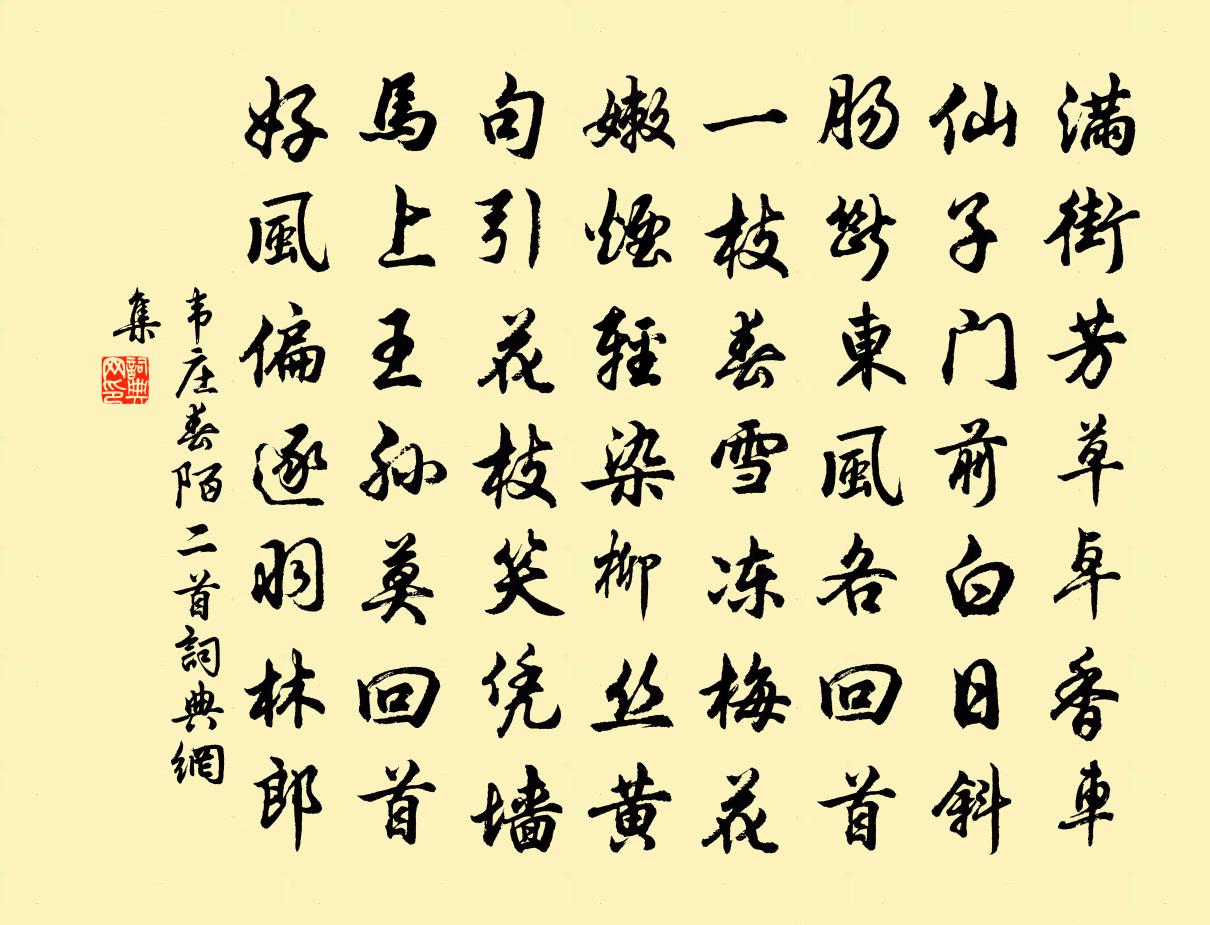 满街芳草卓香車
仙子门前白日斜
肠斷東風各回首
一枝春雪冻梅花
嫩煙輕染柳丝黄
句引花枝笑凭墙
馬上王孙莫回首
好風偏逐羽林郎
韦庄春陌二首詞典網
集
詞典网印